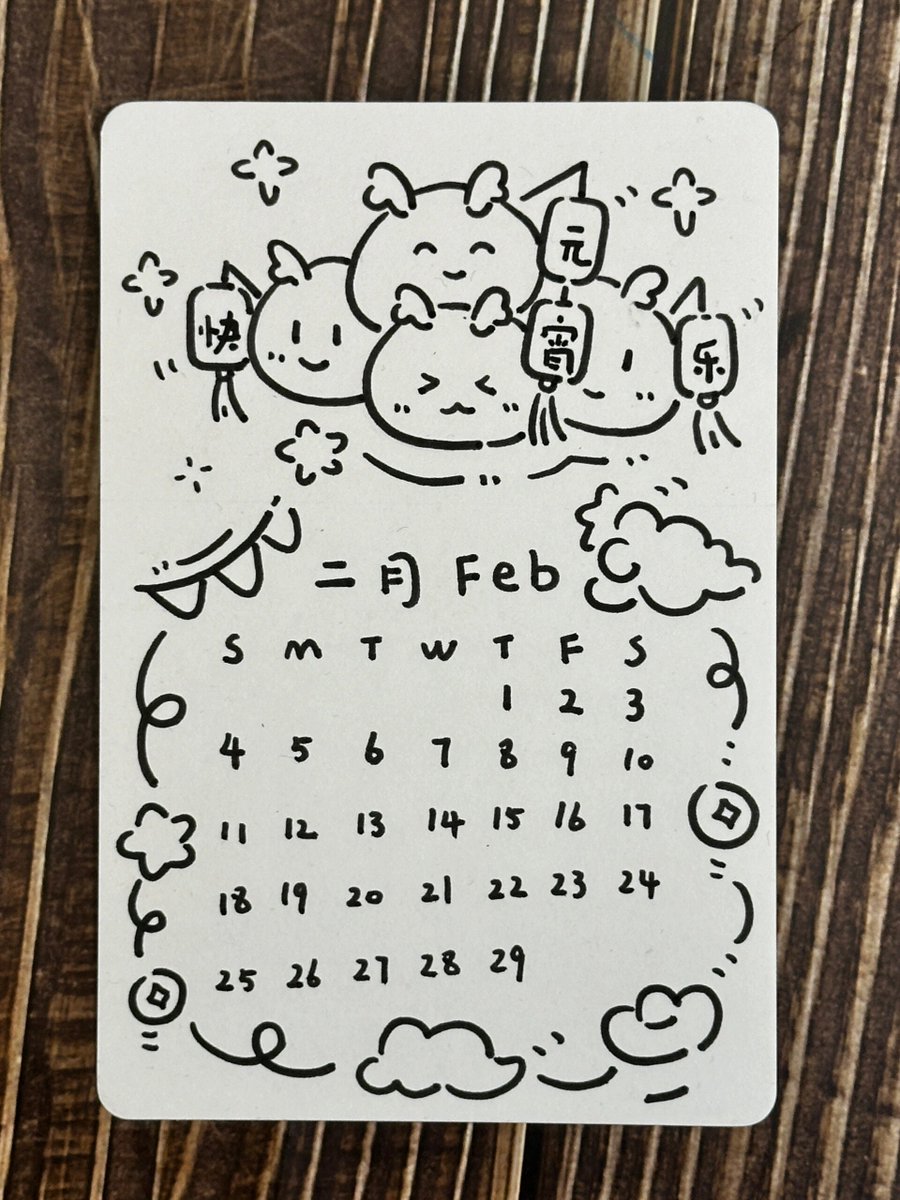 元
宵
快 乐
二月 Feb
S M T W T F S
1 2 3
4 5 6 7 8 9 10
11 12 13 14 15 16 17
18 19 20 21 22 23 24
25 26 27 28 29